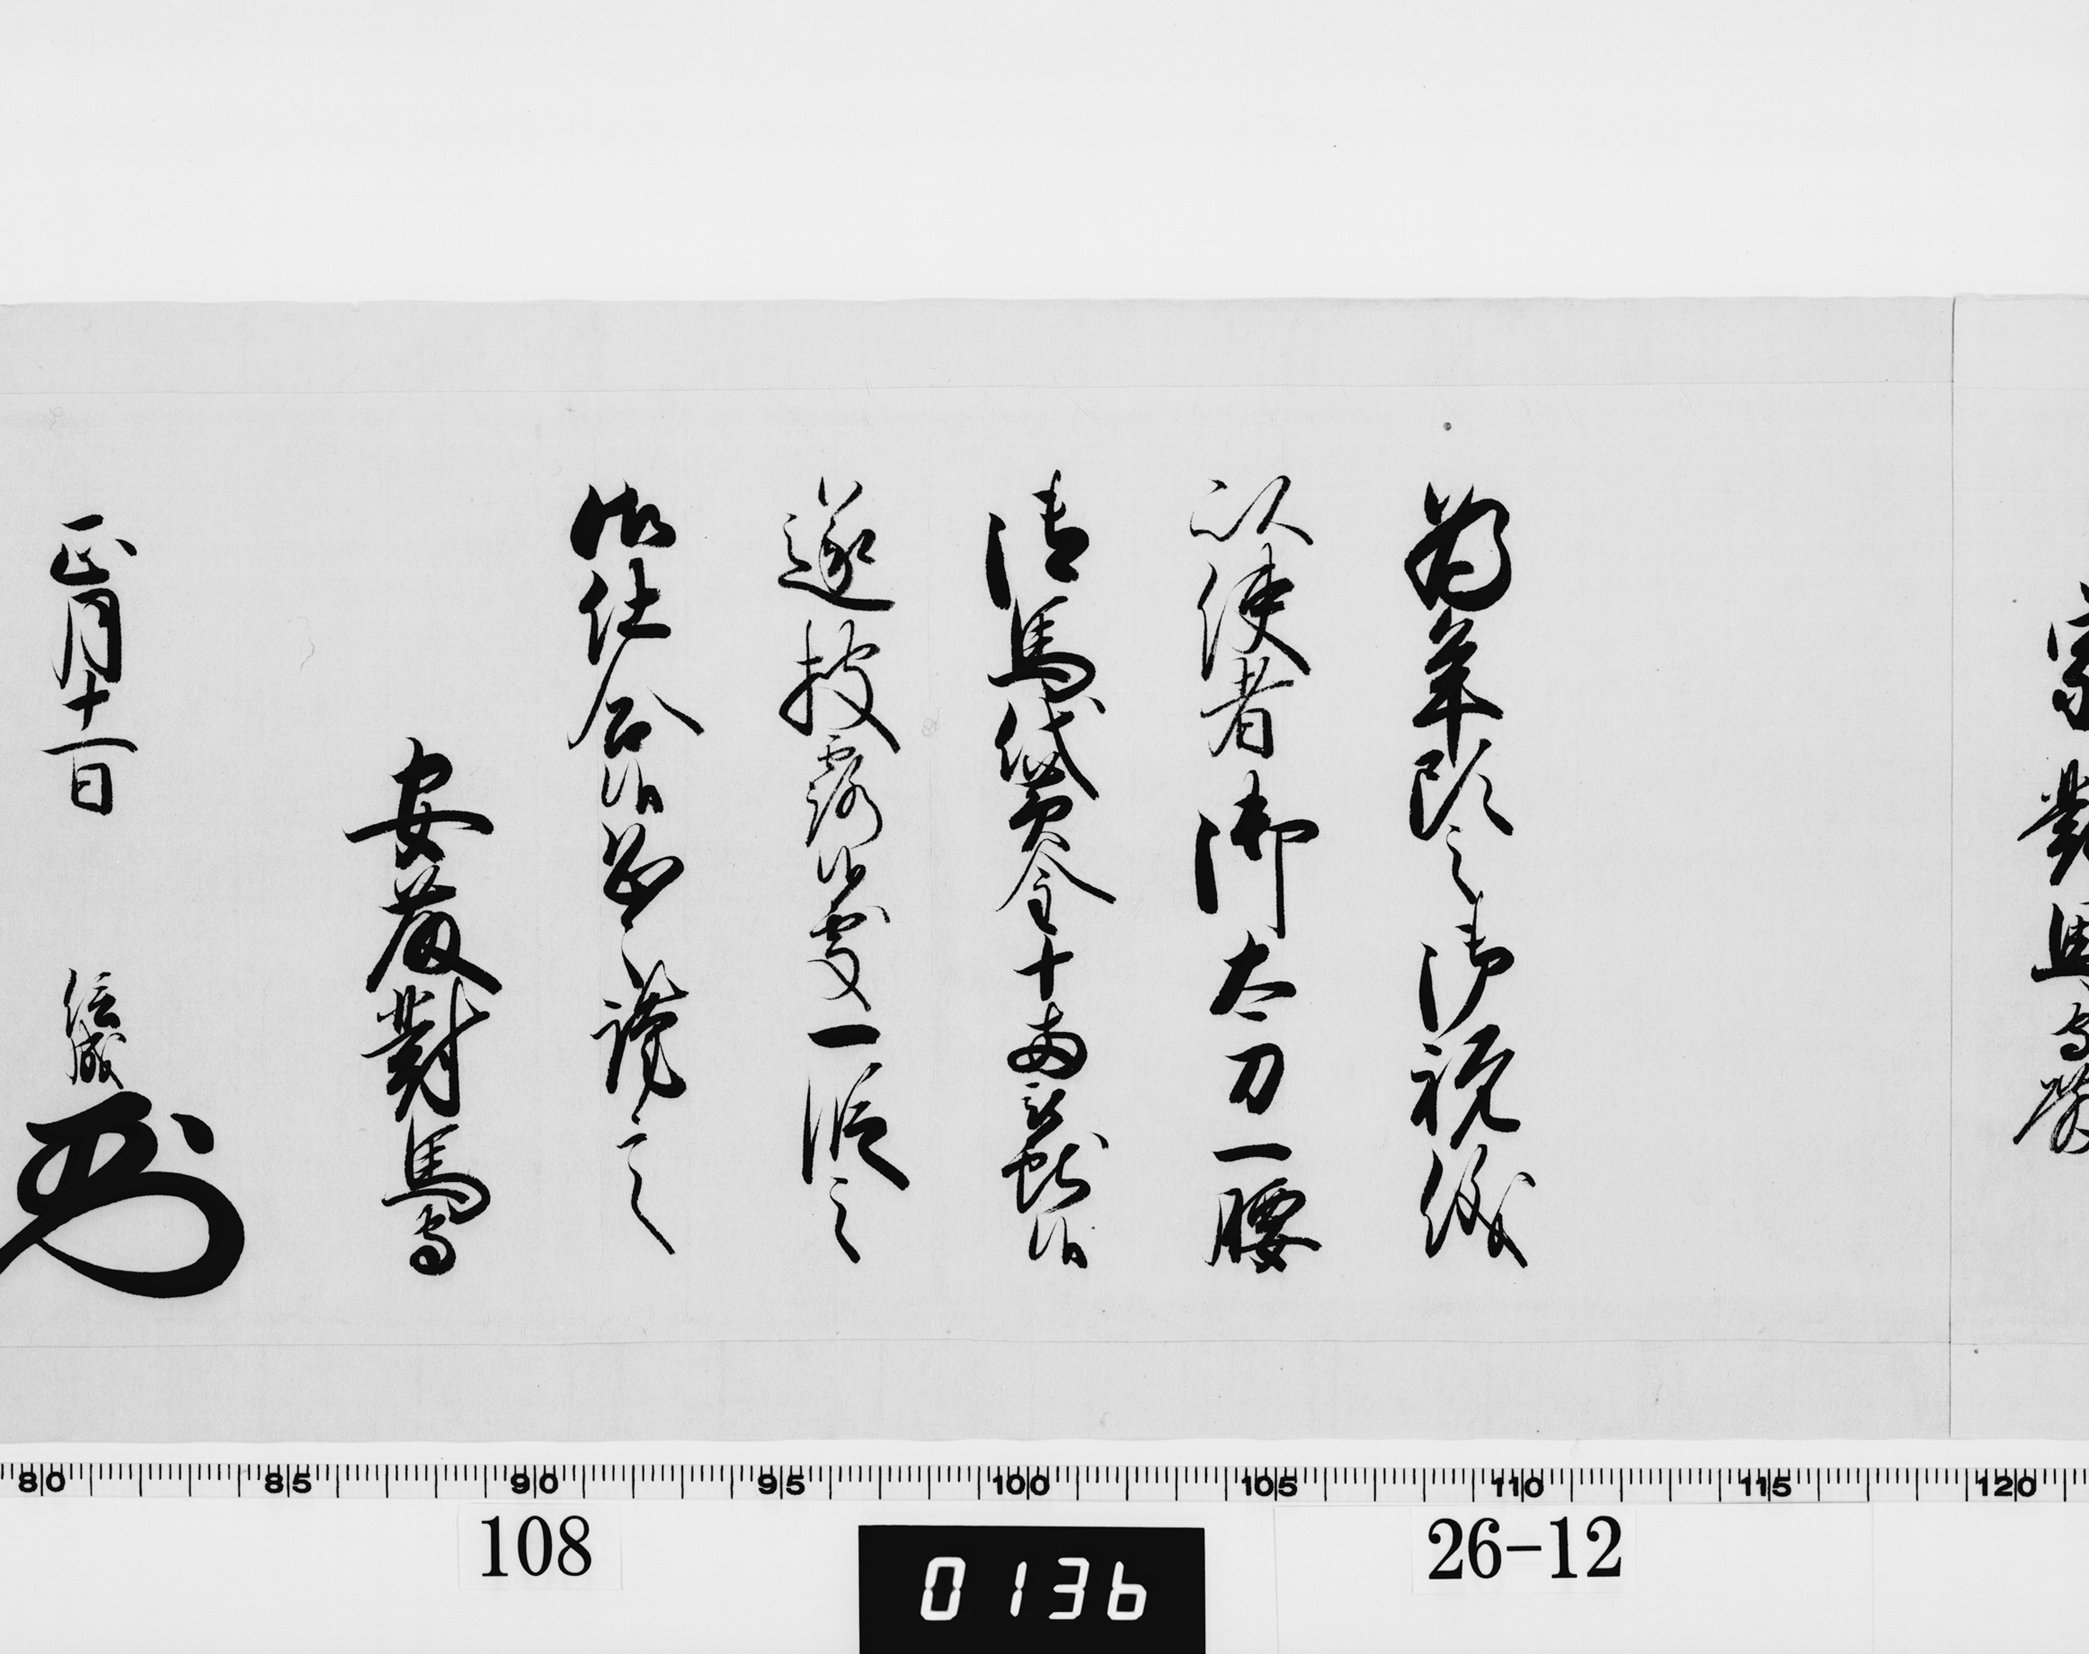 宗對馬守殿
為年頭之御祝儀
以使者御太刀一腰
御馬代黄金十両被献候
遂披露候處一段之
御仕合候恐々謹言
安藤對馬守
正月十一日 信成
80 85 90 95 100 105 110 115 120
108 26-12
0136